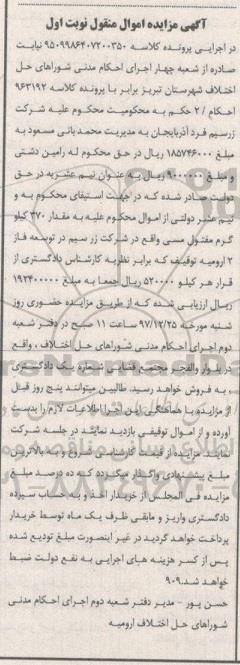 آگهی مزایده اموال منقول نوبت اول
در اجرایی پرونده کلاسه ۹۵۰۹۹۸۶۴۰۷۲۰۰۳۵۰ نیابت
صادره از شعبه چهار اجرای احکام مدنی شوراهای حل
اختلاف شهرستان تبریز برابر با پرونده کلاسه ۹۶۳۱۹۲
احکام / ۲ حکم به محکومیت محکوم علیه شرکت
زرسیم فرد آذربایجان به مدیریت محمد بانی مسعود به
مبلغ ۱۸۵۷۴۶۰۰۰ ریال در حق محکوم له رامین دشتی
و مبلغ ۹۰۰۰۰۰۰ ریال به عنوان نیم عشریه در حق
دولت صادر شده که در جهت استیفای محکوم به و
نیم عشر دولتی از اموال محکوم علیه به مقدار ۳۷۰ کیلو
گرم مفتول مسی واقع در شرکت زر سیم در توسعه فاز
۲ ارومیه توقیف که برابر نظریه کارشناس دادگستری از
قرار هر کیلو ۵۲۰۰۰۰ ریال جمعا به مبلغ ۱۹۲۴۰۰۰۰۰
ریال ارزیابی شده که از طریق مزایده حضوری روز
شنبه مورخه ۹۷/۱۲/۲۵ ساعت ۱۱ صبح در دفتر شعبه
دوم اجرای احکام مدنی شوراهای حل اختلاف ، واقع
در بلوار والفجر مجتمع قضایی شماره یک دادگستری
، به فروش خواهد رسید. طالبین میتوانند پنج روز قبل
از مزایده با هماهنگی این اجرا اطلاعات لازم را بدست
آورده و از اموال توقیفی بازدید نمایند در جلسه شرکت
نمایند. مزایده از قیمت کارشناسی شروع و به بالاترین
مبلغ پیشنهادی واگذار میگردد که ده درصد مبلغ
مزایده فی المجلس از خریدار اخذ و به حساب سپرده
دادگستری واریز و مابقی ظرف یک ماه توسط خریدار
پرداخت خواهد گردید در غیر اینصورت مبلغ تودیع شده
پس از کسر هزینه های اجرایی به نفع دولت ضبط
خواهد شد.۹۰۹
حسن پور - مدیر دفتر شعبه دوم اجرای احکام مدنی
شوراهای حل اختلاف ارومیه